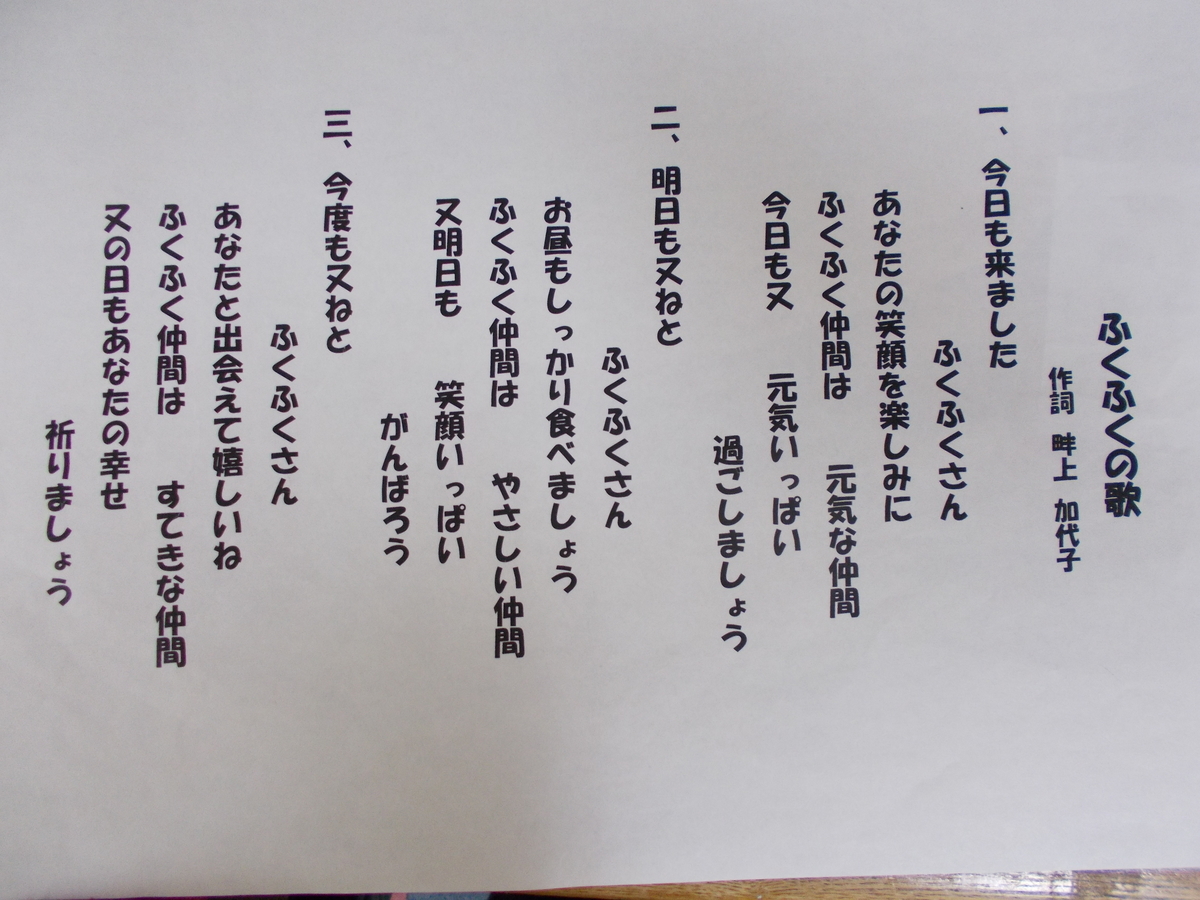 ふくふくの歌
作詞 畔上 加代子
一、今日も来ました
ふくふくさん
あなたの笑顔を楽しみに
ふくふく仲間は 元気な仲間
今日も又 元気いっぱい
過ごしましょう
二、明日も又ねと
ふくふくさん
お昼もしっかり食べましょう
ふくふく仲間は やさしい仲間
又明日も 笑顔いっぱい
がんばろう
三、今度も又ねと
ふくふくさん
あなたと出会えて嬉しいね
ふくふく仲間は すてきな仲間
又の日もあなたの幸せ
祈りましょう